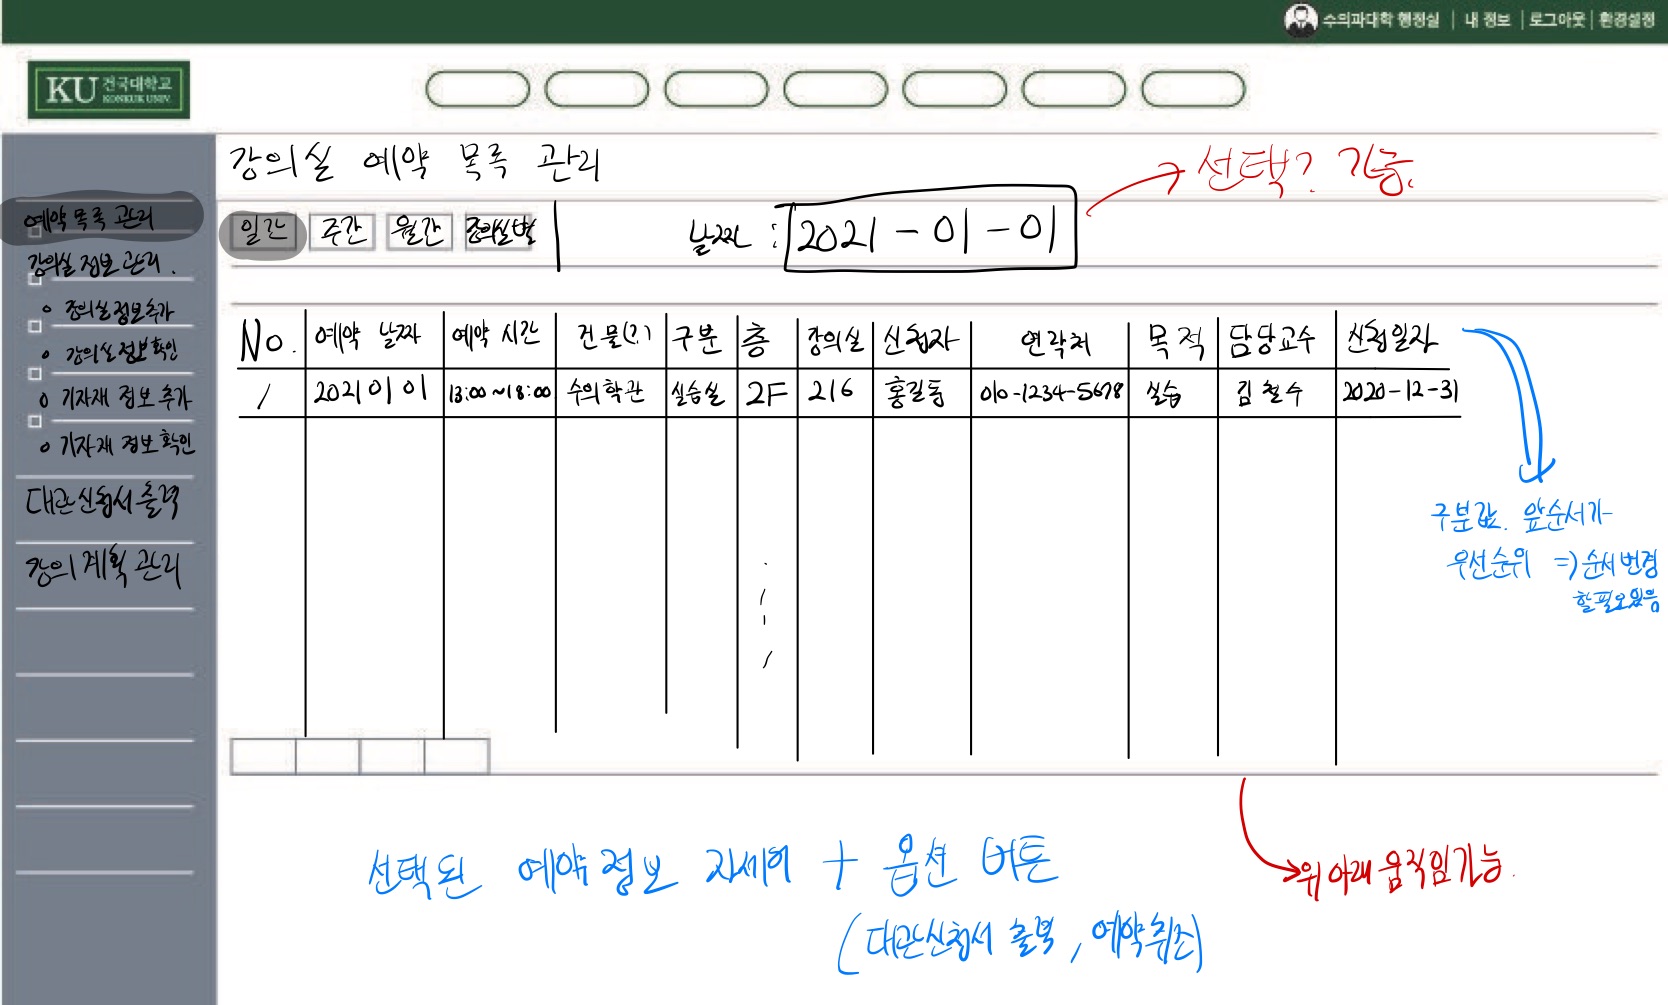 수의과대학 행정실 | 내 정보 | 로그아웃 | 환경설정
KU 건국대학교
KONKUK UNIV.
강의실 예약 목록 관리
→ 선택? 가능.
예약 목록 관리
강의실 정보 관리.
강의실 정보 추가
강의실 정보 확인
기자재 정보 추가
기자재 정보 확인
대관신청서 출력
강의 계획 관리
일간 주간 월간 강의실별
날짜 : 2021-01-01
No. 예약 날짜 예약 시간 건물(?) 구분 층 강의실 신청자 연락처 목적 담당교수 신청일자
1 20210101 13:00~18:00 수의학관 실습실 2F 216 홍길동 010-1234-5678 실습 김철수 2020-12-31
구분값. 앞순서가
우선순위 => 순서변경
할필요있음
선택된 예약정보 자세히 + 옵션 버튼
(대관신청서 출력, 예약취소)
위 아래 움직임가능.